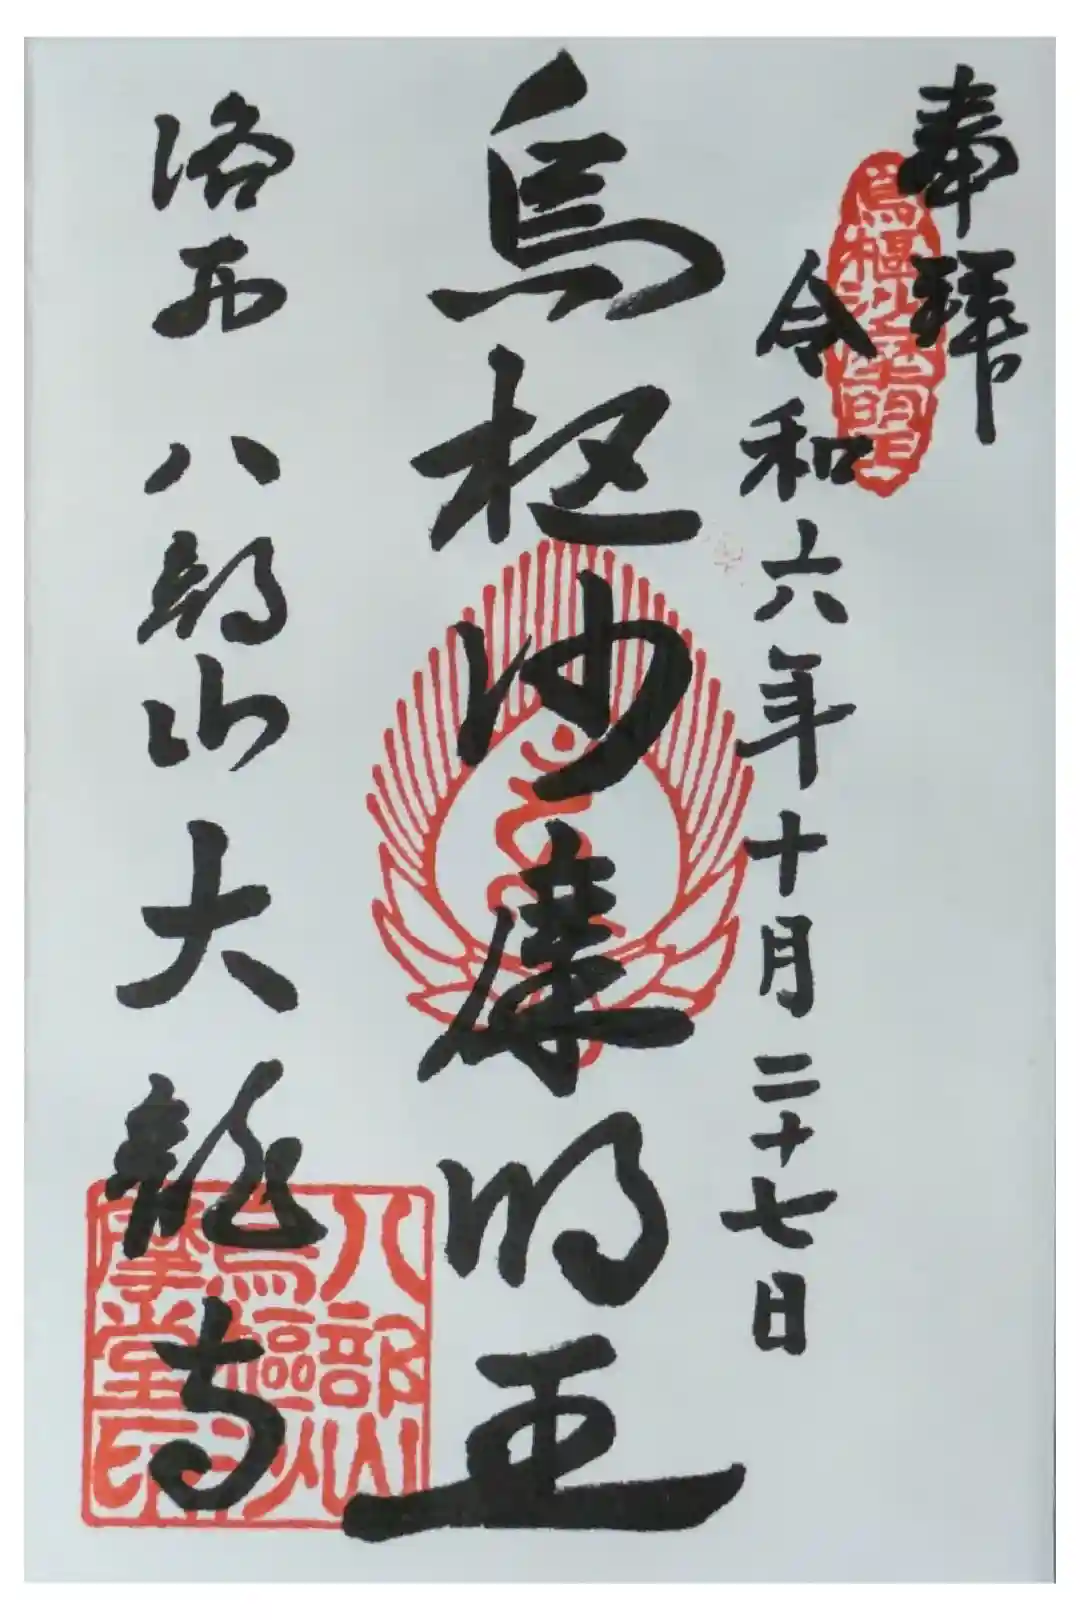 奉拝
令和六年十月二十七日
烏枢沙摩明王
洛西 八部山大龍寺
八部山
烏樞沙
摩堂印